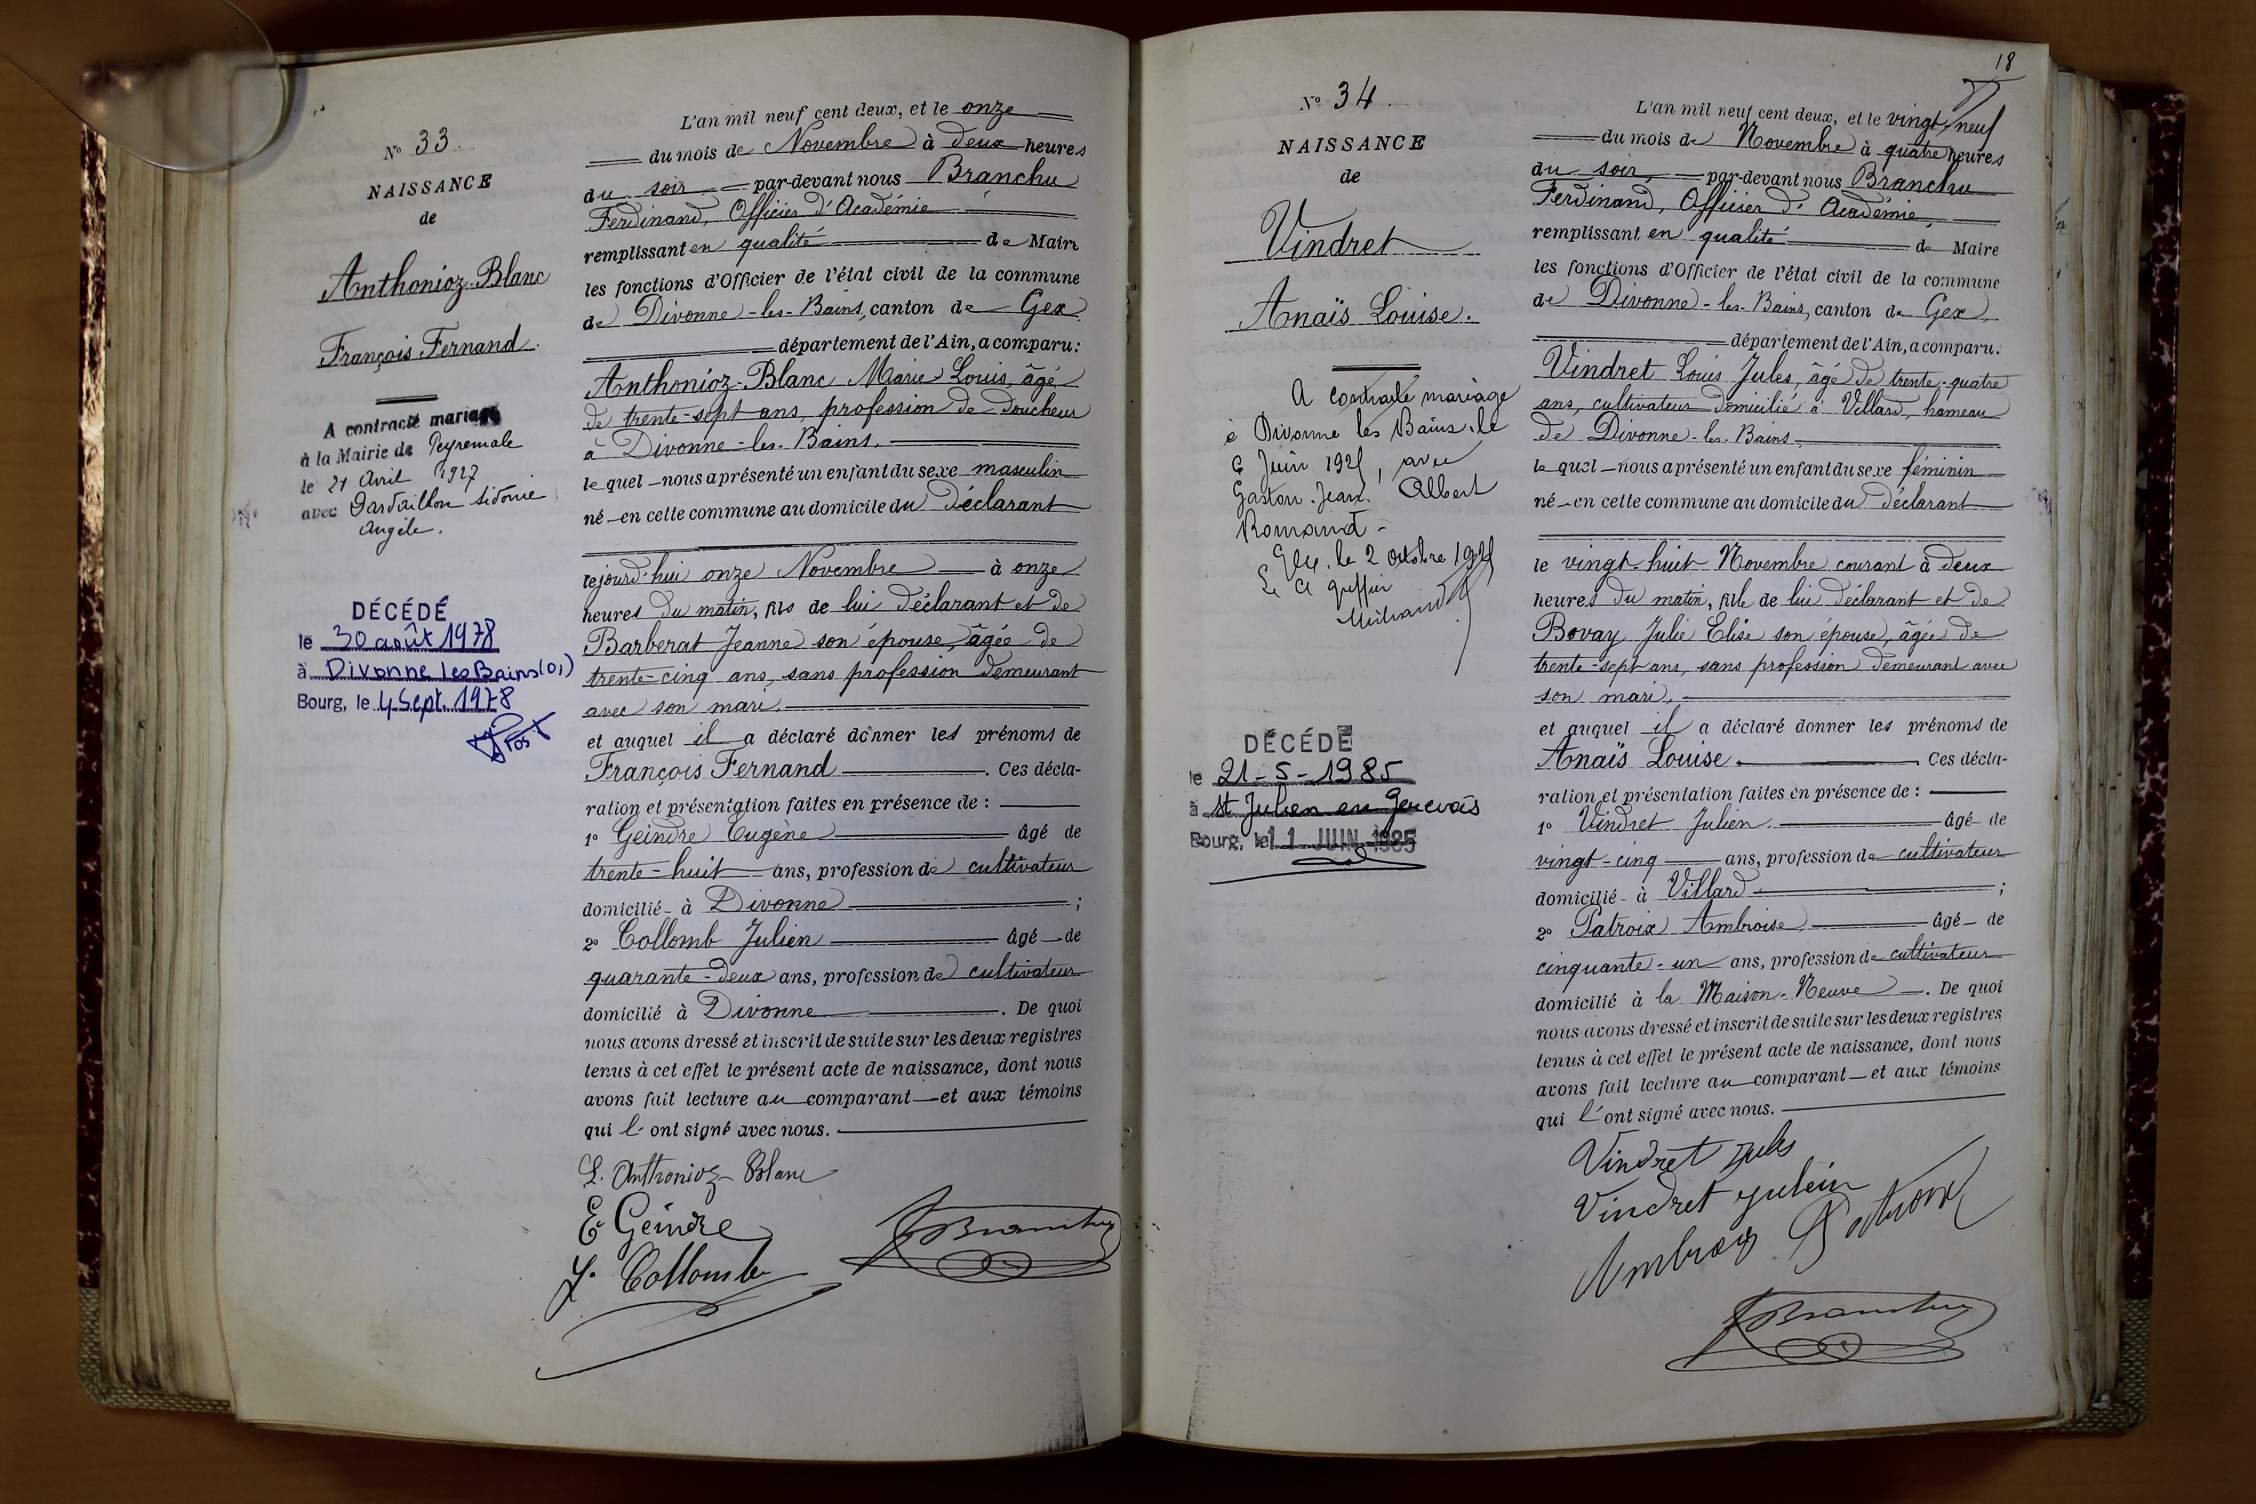 N° 33
NAISSANCE
de
Anthonioz-Blanc
François Fernand.
A contracté mariage
à la Mairie de Peyremale
le 21 Avril 1927
avec Dardaillon Sidonie
Angèle.
DÉCÉDÉ
le 30 août 1978
à Divonne les Bains (01)
Bourg, le 4 Sept. 1978
L'an mil neuf cent deux, et le onze
du mois de Novembre à deux heures
du soir par-devant nous Branchu
Ferdinand, Officier d'Académie
remplissant en qualité de Maire
les fonctions d'Officier de l'état civil de la commune
de Divonne-les-Bains, canton de Gex
département de l'Ain, a comparu:
Anthonioz-Blanc Marie Louis, âgé
de trente-sept ans, profession de doucheur
à Divonne-les-Bains.
lequel nous a présenté un enfant du sexe masculin
né en cette commune au domicile du Déclarant
cejourd'hui onze Novembre à onze
heures du matin, fils de lui déclarant et de
Barberat Jeanne son épouse, âgée de
trente-cinq ans, sans profession demeurant
avec son mari.
et auquel il a déclaré donner les prénoms de
François Fernand. Ces décla-
ration et présentation faites en présence de :
1° Geindre Eugène âgé de
trente-huit ans, profession de cultivateur
domicilié à Divonne ;
2° Collomb Julien âgé de
quarante-deux ans, profession de cultivateur
domicilié à Divonne. De quoi
nous avons dressé et inscrit de suite sur les deux registres
tenus à cet effet le présent acte de naissance, dont nous
avons fait lecture au comparant et aux témoins
qui l'ont signé avec nous.
L. Anthonioz-Blanc
E Geindre
J. Collomb
Branchu
18
N° 34
NAISSANCE
de
Vindret
Anaïs Louise.
A contracté mariage
à Divonne les Bains, le
Juin, avec
Gaston Jean Albert
Romand
Gex, le 2 octobre
Le greffier
DÉCÉDÉ
le 21-5-1985
à St Julien en Genevois
Bourg, le 11 JUIN 1985
L'an mil neuf cent deux, et le vingt-neuf
du mois de Novembre à quatre heures
du soir, par-devant nous Branchu
Ferdinand, Officier d'Académie
remplissant en qualité de Maire
les fonctions d'Officier de l'état civil de la commune
de Divonne-les-Bains, canton de Gex,
département de l'Ain, a comparu.
Vindret Louis Jules, âgé de trente-quatre
ans, cultivateur domicilié à Villard, hameau
de Divonne-les-Bains
lequel nous a présenté un enfant du sexe féminin
né en cette commune au domicile du déclarant
le vingt-huit Novembre courant à deux
heures du matin, fille de lui déclarant et de
Bovay Julie Elise son épouse, âgée de
trente-sept ans, sans profession demeurant avec
son mari,
et auquel il a déclaré donner les prénoms de
Anaïs Louise. Ces décla-
ration et présentation faites en présence de :
1° Vindret Julien. âgé de
vingt-cinq ans, profession de cultivateur
domicilié à Villard ;
2° Patroix Ambroise âgé de
cinquante-un ans, profession de cultivateur
domicilié à la Maison-Neuve. De quoi
nous avons dressé et inscrit de suite sur les deux registres
tenus à cet effet le présent acte de naissance, dont nous
avons fait lecture au comparant et aux témoins
qui l'ont signé avec nous.
Vindret Jules
Vindret Julein
Ambroix Patroix
Branchu